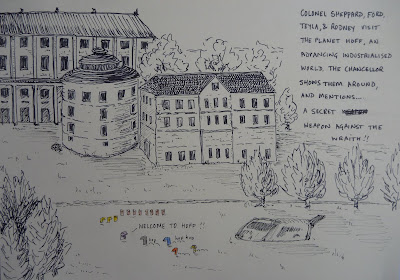 COLONEL SHEPPARD, FORD,
TEYLA, & RODNEY VISIT
THE PLANET HOFF, AN
ADVANCING INDUSTRIALISED
WORLD. THE CHANCELLOR
SHOWS THEM AROUND,
AND MENTIONS...
A SECRET
WEAPON AGAINST THE
WRAITH!!
WELCOME TO HOFF !!